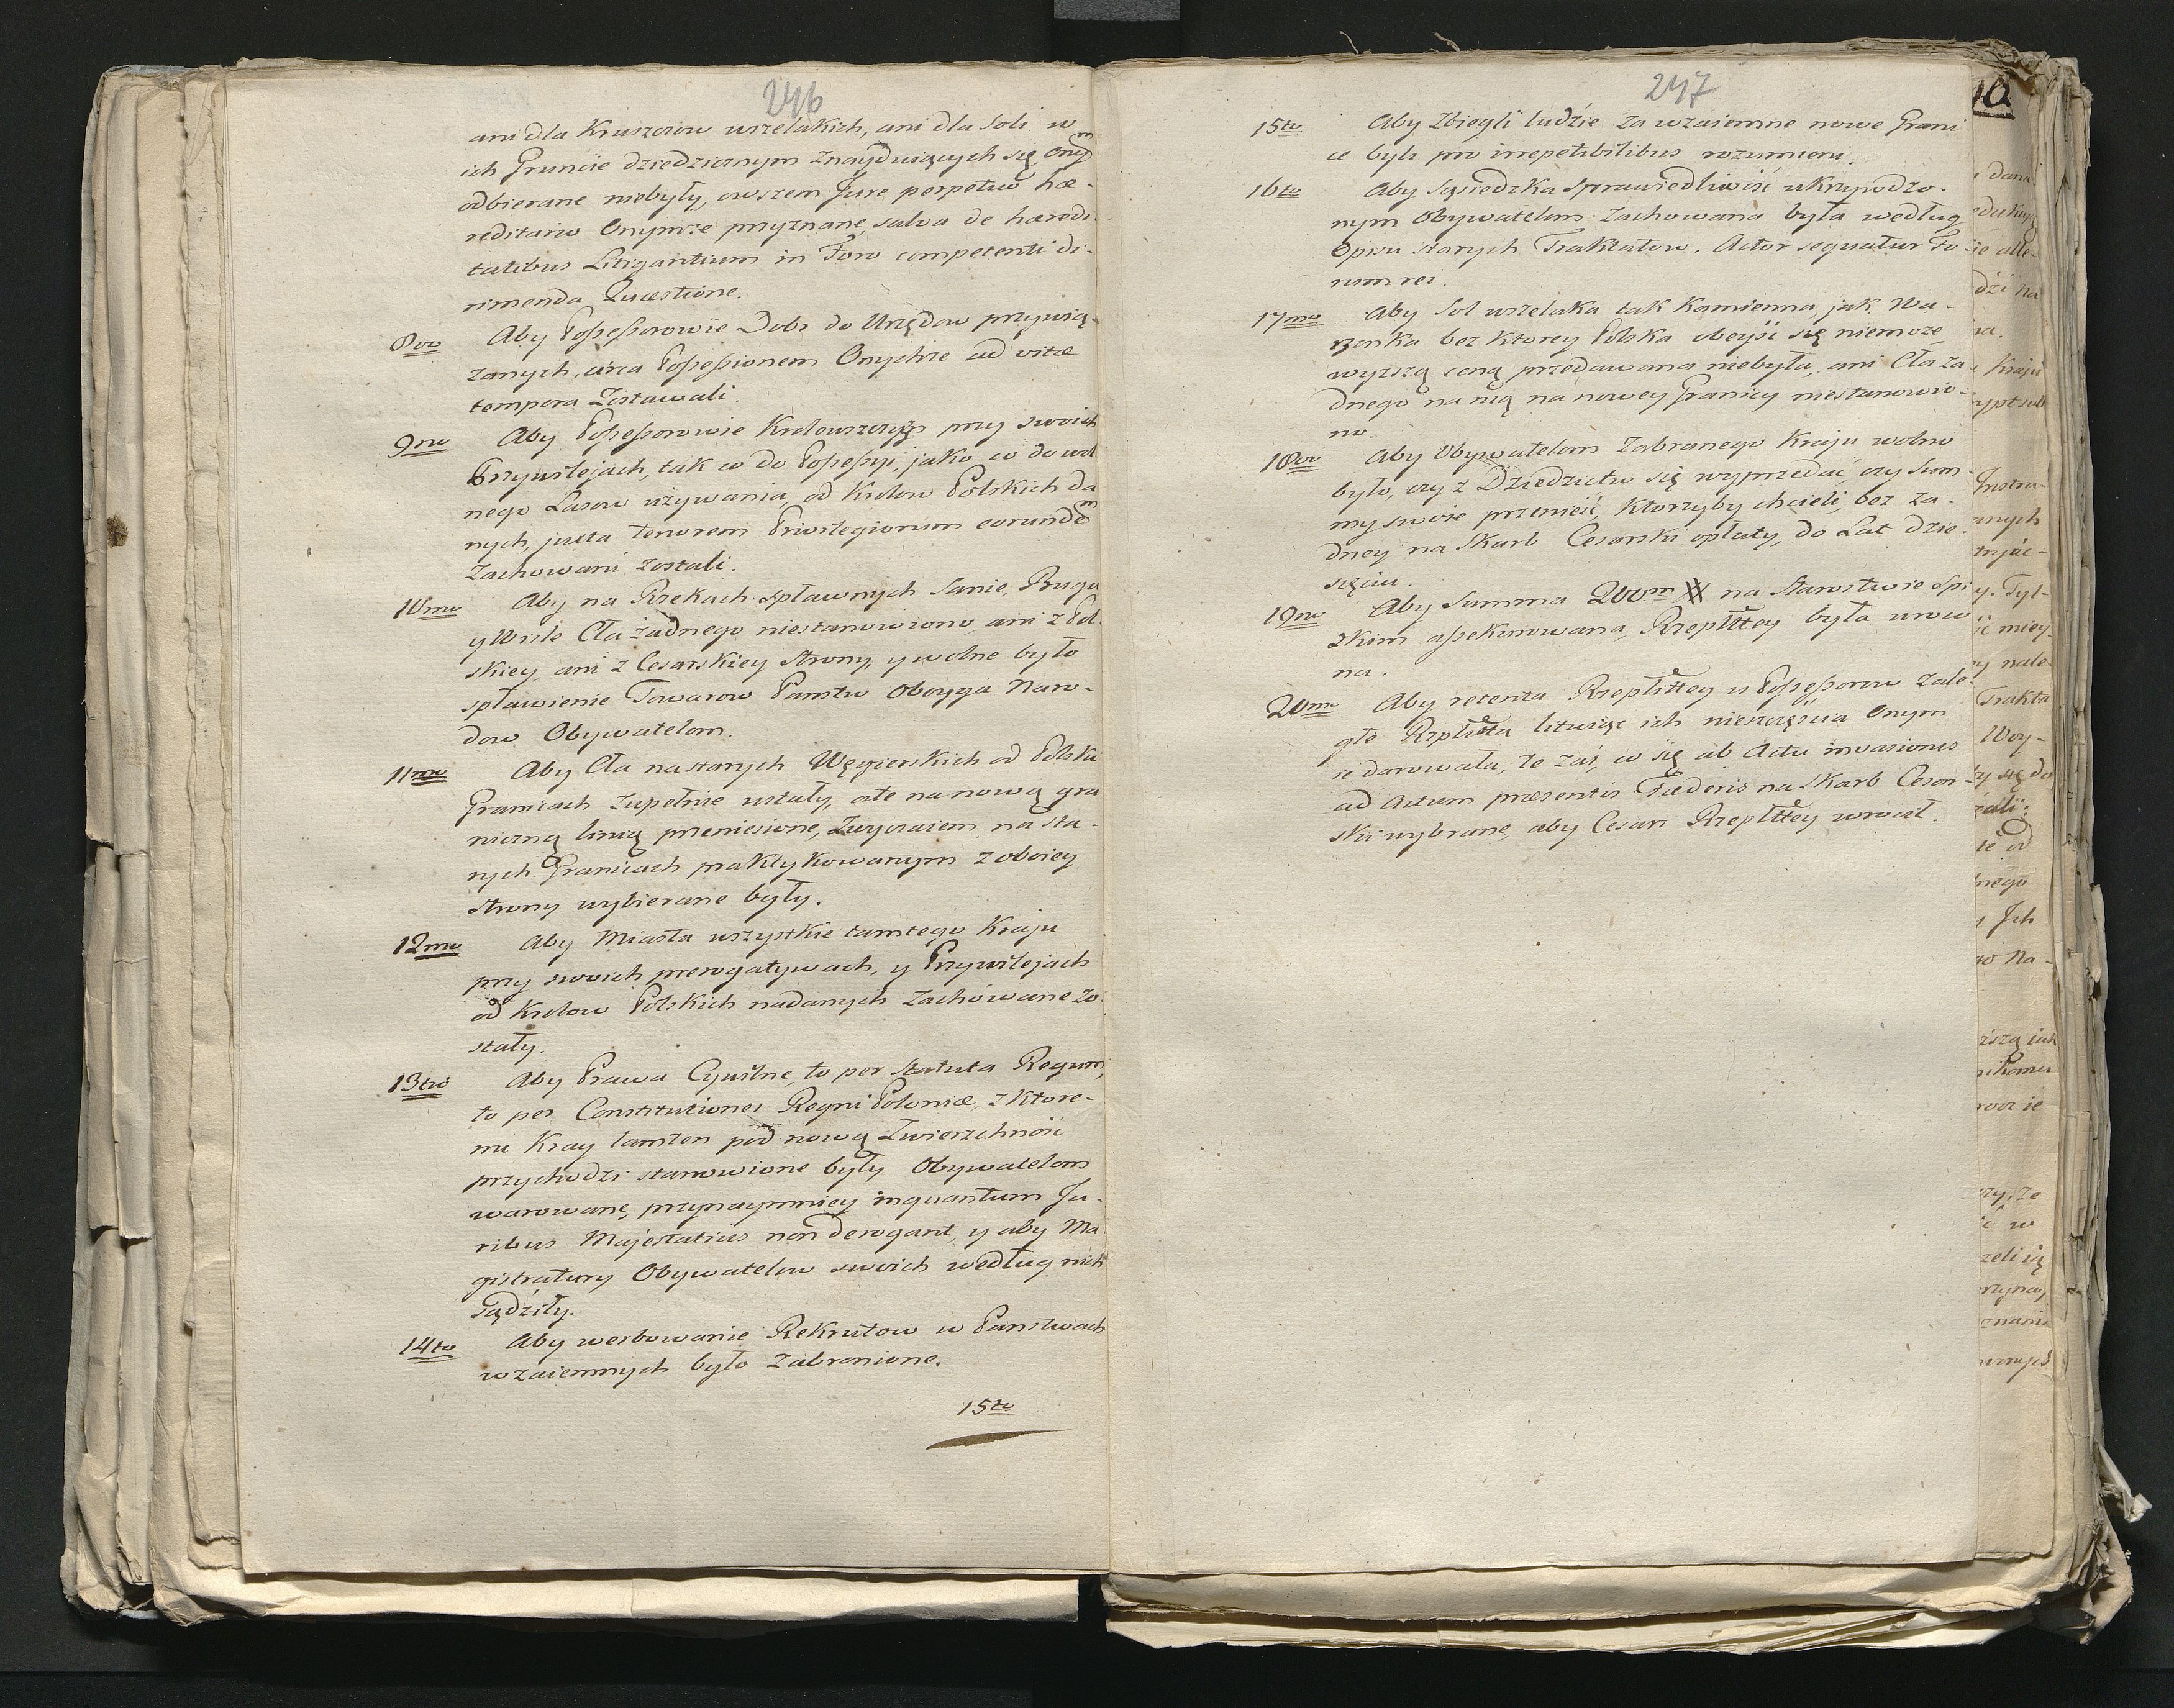 246
ani dla Kruszcow wszelakich, ani dla Soli w
ich Gruncie dziedzicznym znayduiących się Onym
odbierane niebyły, owszem Jure perpetuo hæ-
reditario Onymże przyznane, salva de hæredi-
tatibus Litigantium in Foro competenti di-
rimenda Quæstione.
8vo Aby Possessorowie Dobr do Urzędow przywią-
zanych, circa Possessionem Onychże ad vitæ
tempora zostawali.
9no Aby Possessorowie Krolewszczyzn przy swoich
Przywilejach, tak co do Possessyi, jako co do wol
nego Lasow używania, od Krolow Polskich da
nych, juxta tenorem Privilegiorum eorundem
Zachowani zostali.
10mo Aby na Rzekach spławnych Sanie, Bugu
y Wisle Cła żadnego niestanowiono, ani z Pol
skiey, ani z Cesarskiey Strony, y wolne było
spławienie Towarow Panstw Oboyga Naro-
dow Obywatelom.
11mo Aby Cła na starych Węgierskich od Polski
Granicach zupełnie ustały, ale na nową gra
niczną linią przeniesione, Zwyczaiem na sta-
rych Granicach praktykowanym z oboiey
strony wybierane były.
12mo Aby Miasta wszystkie tamtego Kraju
przy swoich prerogatywach, y Przywilejach
od Krolow Polskich nadanych Zachowane Zo-
stały.
13tio Aby Prawa Cywilne, to per Statuta Regum,
to per Constitutiones Regni Poloniæ, z ktore-
mi Kray tamten pod nową Zwierzchność
przychodzi stanowione były Obywatelom
warowane, przynaymniey inquantum Ju-
ribus Majestatius non derogant, y aby Ma
gistratury Obywatelow swoich według nich
sądziły.
14to Aby werbowanie Rekrutow w Panstwach
wzaiemnych było zabronione.
15to
247
15to Aby Zbiegli ludzie za wzaiemne nowe Grani
ce byli pro irrepetibilibus rozumieni.
16to Aby Sąsiedzka Sprawiedliwość ukrzywdzo-
nym Obywatelom zachowana była według
Opisu starych Traktatow. Actor sequatur Fo
rum rei.
17mo Aby Sol wszelaka tak Kamienna, jak Wa-
rzonka bez ktorey Polska obeyść się niemoże
wyższą ceną przedawana niebyła, ani Cła ża
dnego na nią na nowey Granicy niestanowio-
no.
18vo Aby Obywatelom Zabranego Kraju wolno
było, czy z Dziedzictw się wyprzedać, czy Sum-
my swoie przenieść, ktorzyby chcieli, bez ża-
dney na Skarb Cesarski opłaty, do Lat dzie-
sięciu.
19no Aby Summa 200m # na Starostwie Spi
skim assekurowana, Rzepltey była wrocо
na.
20mo Aby retenta Rzepltey u Possessorow zale-
głe Rzeplta lituiąc ich nieszczęścia Onym
że darowała, te zaś, co się ab Actu invasionis
ad Actum præsentis Fœderis na Skarb Cesar-
ski wybrane, aby Cesarz Rzepltey wrocił.